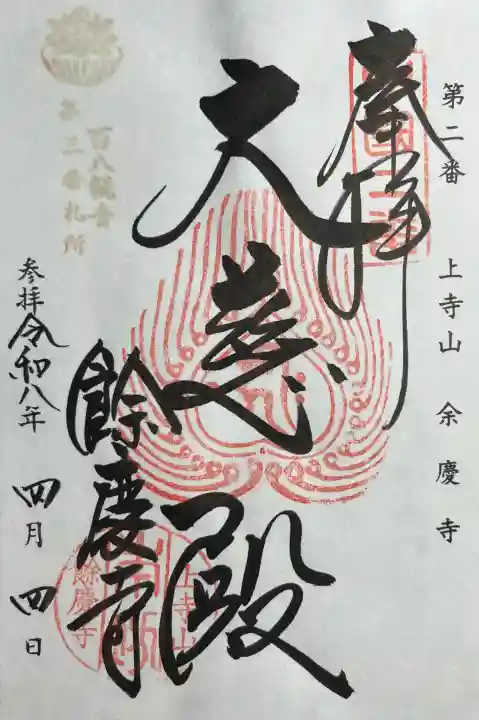 第二番　上寺山　余慶寺
奉拝
大慈殿
餘慶寺
百八観音
第二番札所
参拝令和八年四月四日
上寺山
餘慶寺